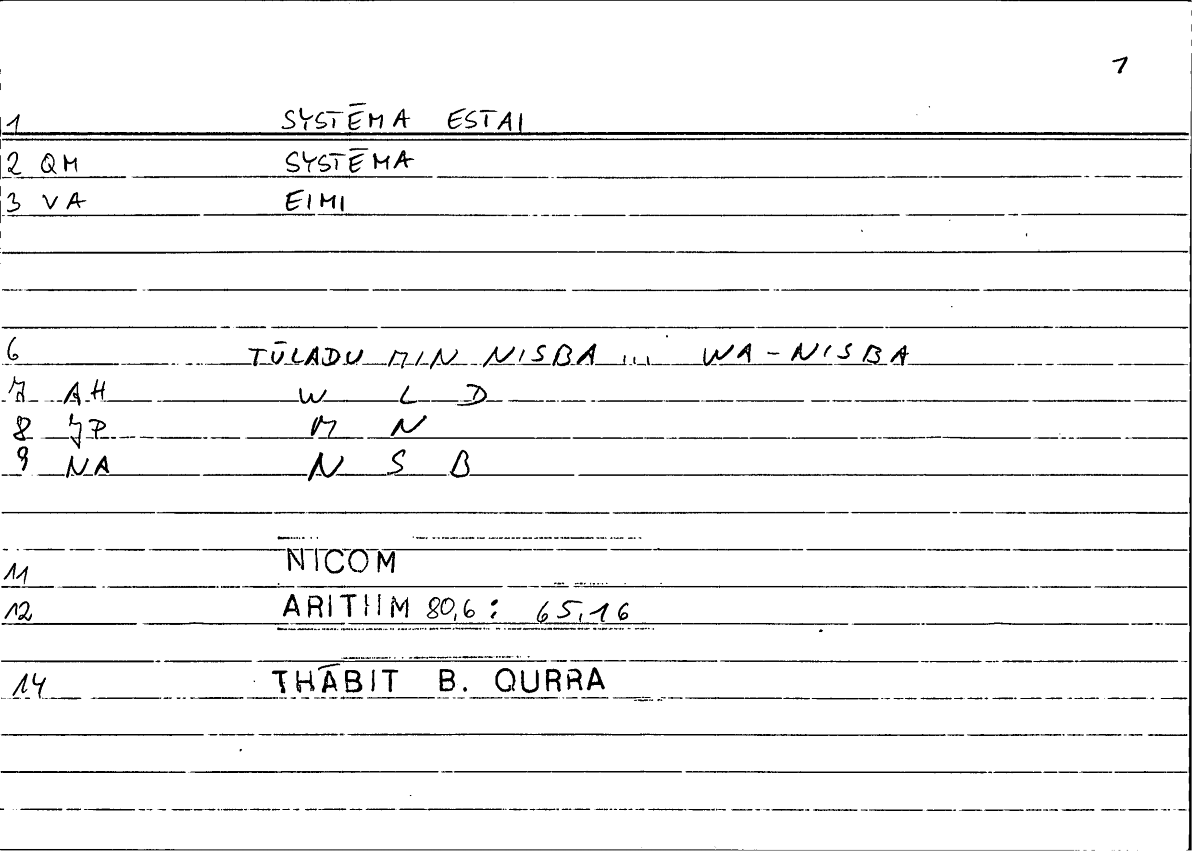 1
1 SYSTĒMA ESTAI
2 QM SYSTĒMA
3 VA EIMI
6 TŪLADU MIN NISBA ... WA-NISBA
7 AH W L D
8 JP M N
9 NA N S B
11 NICOM
12 ARITHM 80,6: 65,16
14 THĀBIT B. QURRA